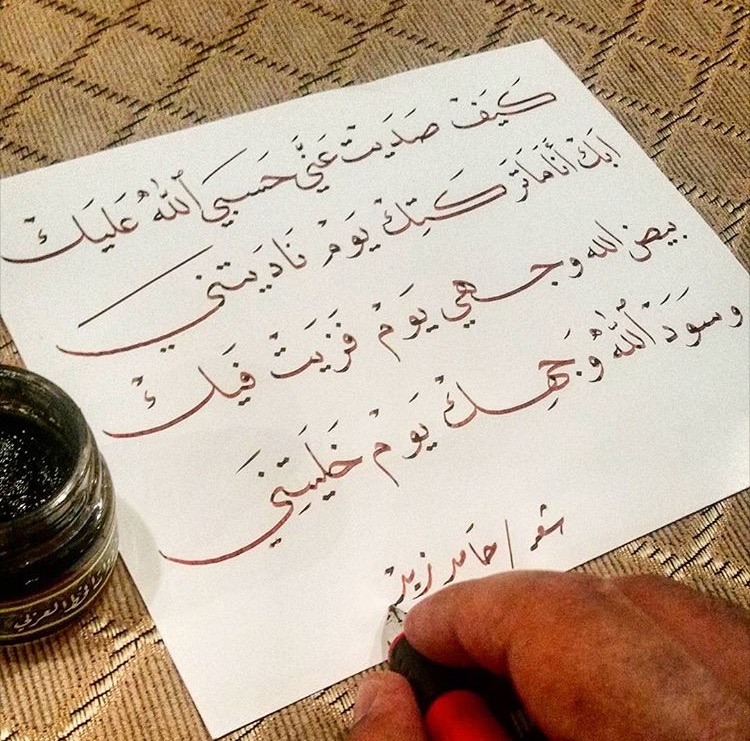 كَيَفْ صَدَيت عَنيَّ حَسبيَ ٱللهُ عَليَك
ابَكْ أنَا مَا تَركَتِكْ يَومْ نَاديَتني
بيض الله وجهي يَومْ فَزيَتْ فَيكْ
وسَودَ ٱللهُ وَجهِكْ يَومْ خَليَتِني
شعر / حَامد زيدْ